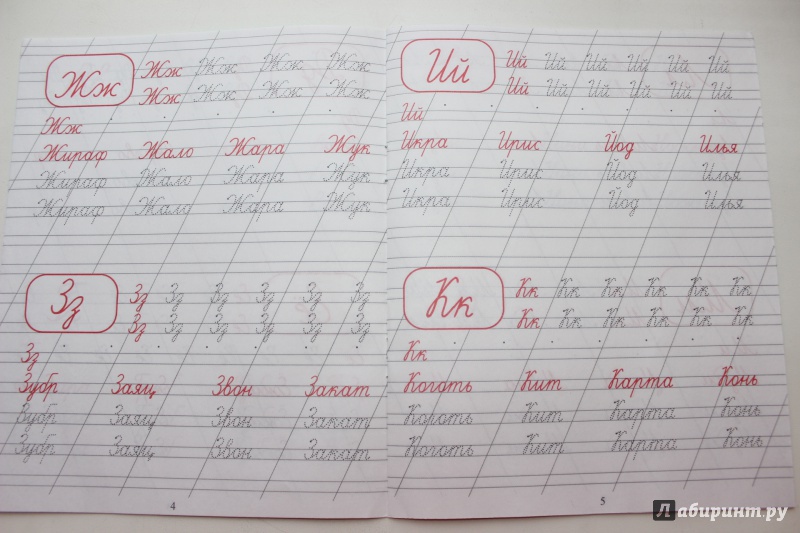 Жж
Жж Жж Жж Жж
Жж Жж Жж Жж
Жж
Жираф Жало Жара Жук
Жираф Жало Жара Жук
Жираф Жало Жара Жук
Зз
Зз Зз Зз Зз Зз Зз
Зз Зз Зз Зз Зз Зз
Зз
Зубр Заяц Звон Закат
Зубр Заяц Звон Закат
Зубр Заяц Звон Закат
4
Ий
Ий Ий Ий Ий Ий Ий
Ий Ий Ий Ий Ий Ий
Ий
Икра Ирис Йод Илья
Икра Ирис Йод Илья
Икра Ирис Йод Илья
Кк
Кк Кк Кк Кк Кк Кк
Кк Кк Кк Кк Кк Кк
Кк
Коготь Кит Карта Конь
Коготь Кит Карта Конь
Коготь Кит Карта Конь
5
Лабиринт.ру